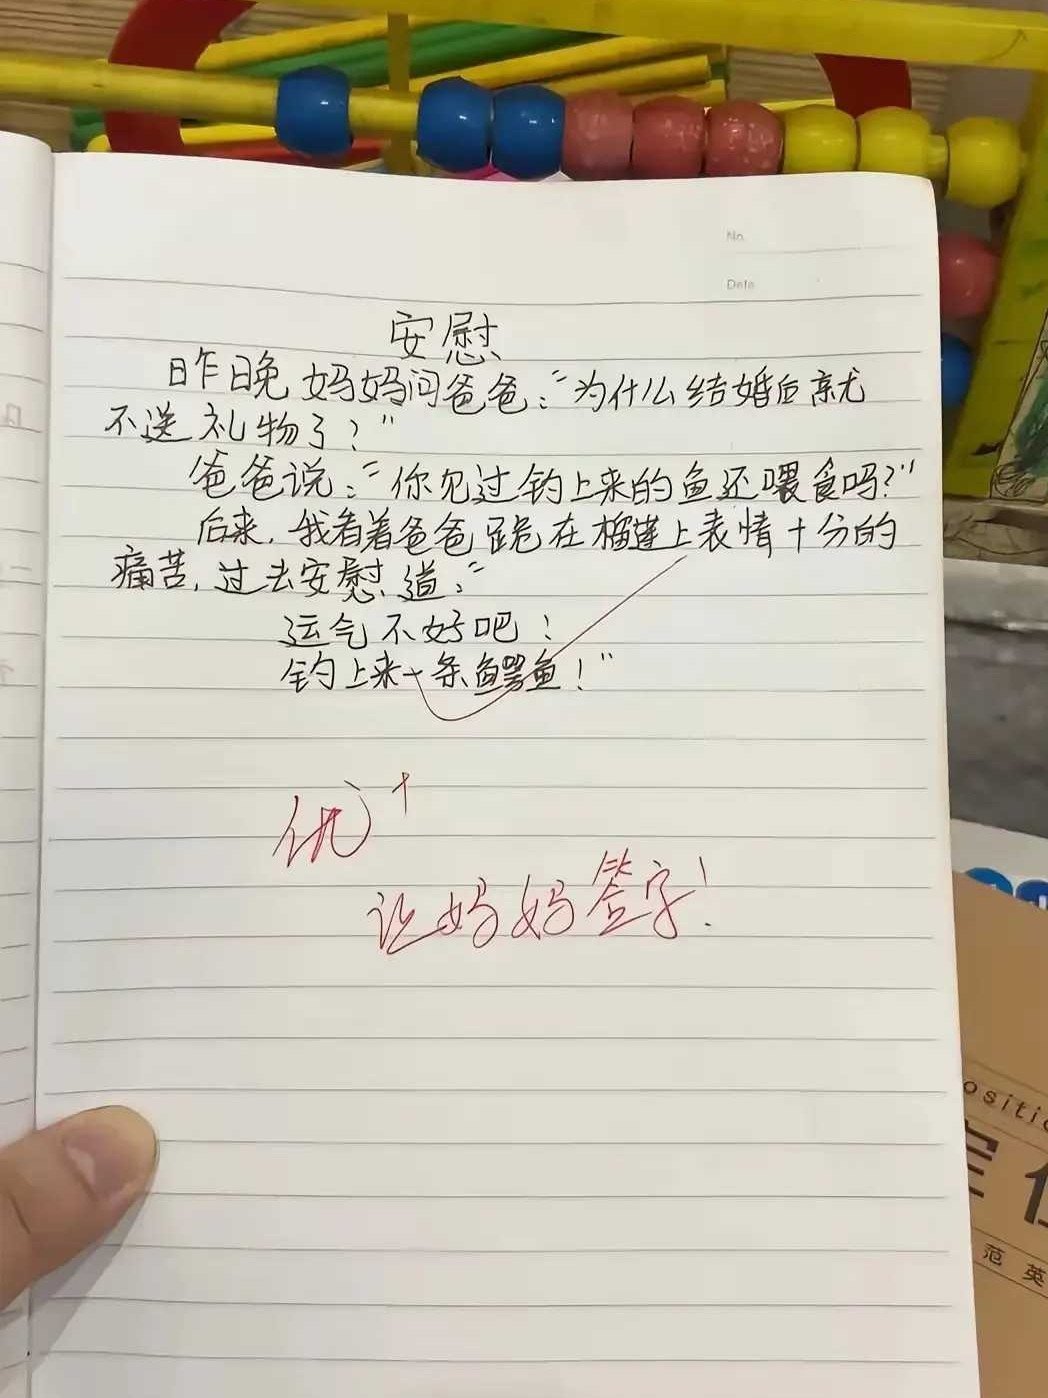 No.
Date
安慰
昨晚妈妈问爸爸：“为什么结婚后就
不送礼物了？”
爸爸说：“你见过钓上来的鱼还喂食吗？”
后来，我看着爸爸跪在榴莲上表情十分的
痛苦，过去安慰道：“
运气不好吧！
钓上来一条鳄鱼！”
优+
让妈妈签字！
ositio
定位
范 英